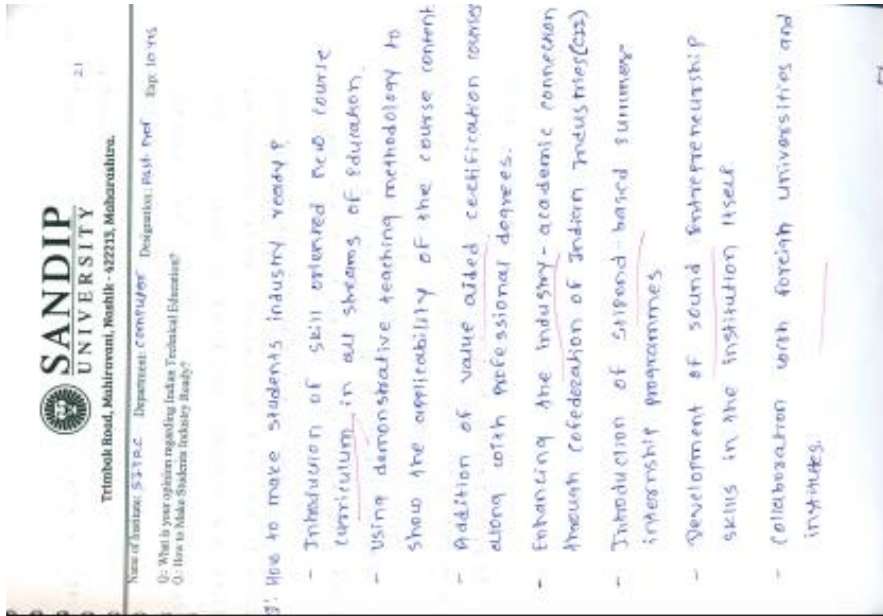 21
SANDIP
UNIVERSITY
Trimbak Road, Mahiravani, Nashik - 422213, Maharashtra.
Name of Institute: SITRC Department: Computer Designation: Asst. Prof Exp: 10 yrs
Q.: What is your opinion regarding Indian Technical Education?
Q.: How to Make Students Industry Ready?
How to make students industry ready?
- Introduction of skill oriented new course
curriculum in all streams of education.
- Using demonstrative teaching methodology to
show the applicability of the course content
- Addition of value aided certification courses
along with professional degrees.
- Enhancing the industry - academic connection
through cofederation of Indian Industries (CII)
- Introduction of stipend - based summer
internship programmes
- Development of sound Entrepreneurship
skills in the institution itself
- Collaboration with foreign universities and
institutes.